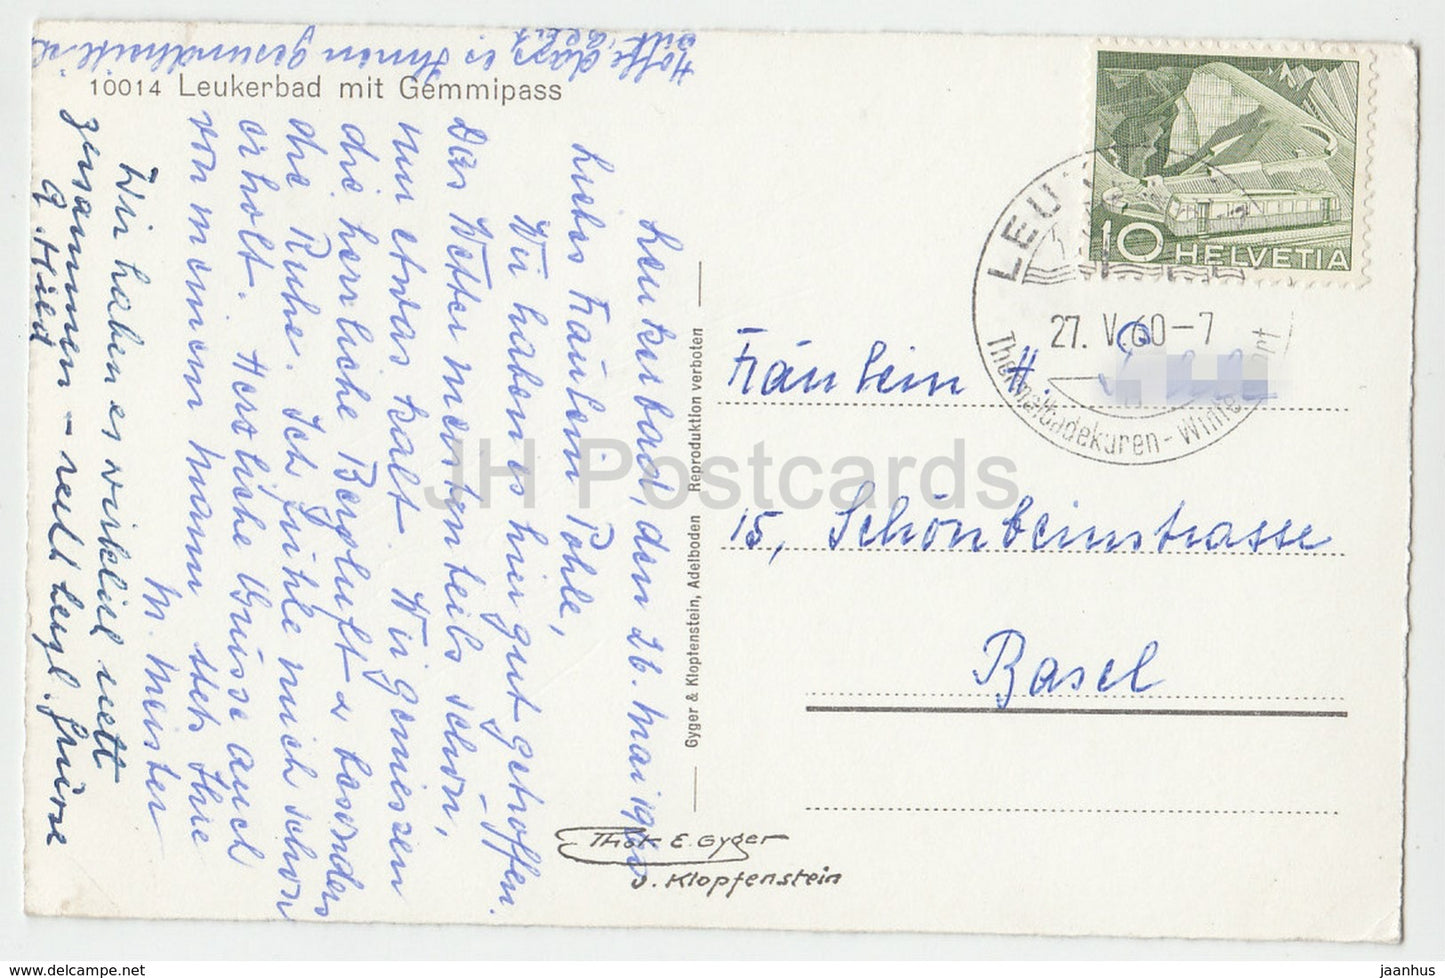 10014 Leukerbad mit Gemmipass
Leukerbad, den 26. Mai 1960
Liebes Fräulein Pohle,
Wir haben es hier gut getroffen.
Das Wetter meistenteils schön,
nur etwas kalt. Wir geniessen
die herrliche Bergluft & besonders
die Ruhe. Ich fühle mich schon
erholt. Herzliche Grüsse auch
von meinem Mann stets Ihre
M. Meister
Wir haben es wirklich nett
zusammen – recht herzl. Grüsse
G. Hild
Hoffe dass es Ihnen gesundheitlich
gut geht
Gyger & Klopfenstein, Adelboden Reproduktion verboten
Phot. E. Gyger
u. Klopfenstein
10 HELVETIA
LEUK
27. V. 60–7
Thermalbadekuren - Wintersport
Fräulein H.
15, Schönbeinstrasse
Basel
JH Postcards
jaanhus @ delcampe.net